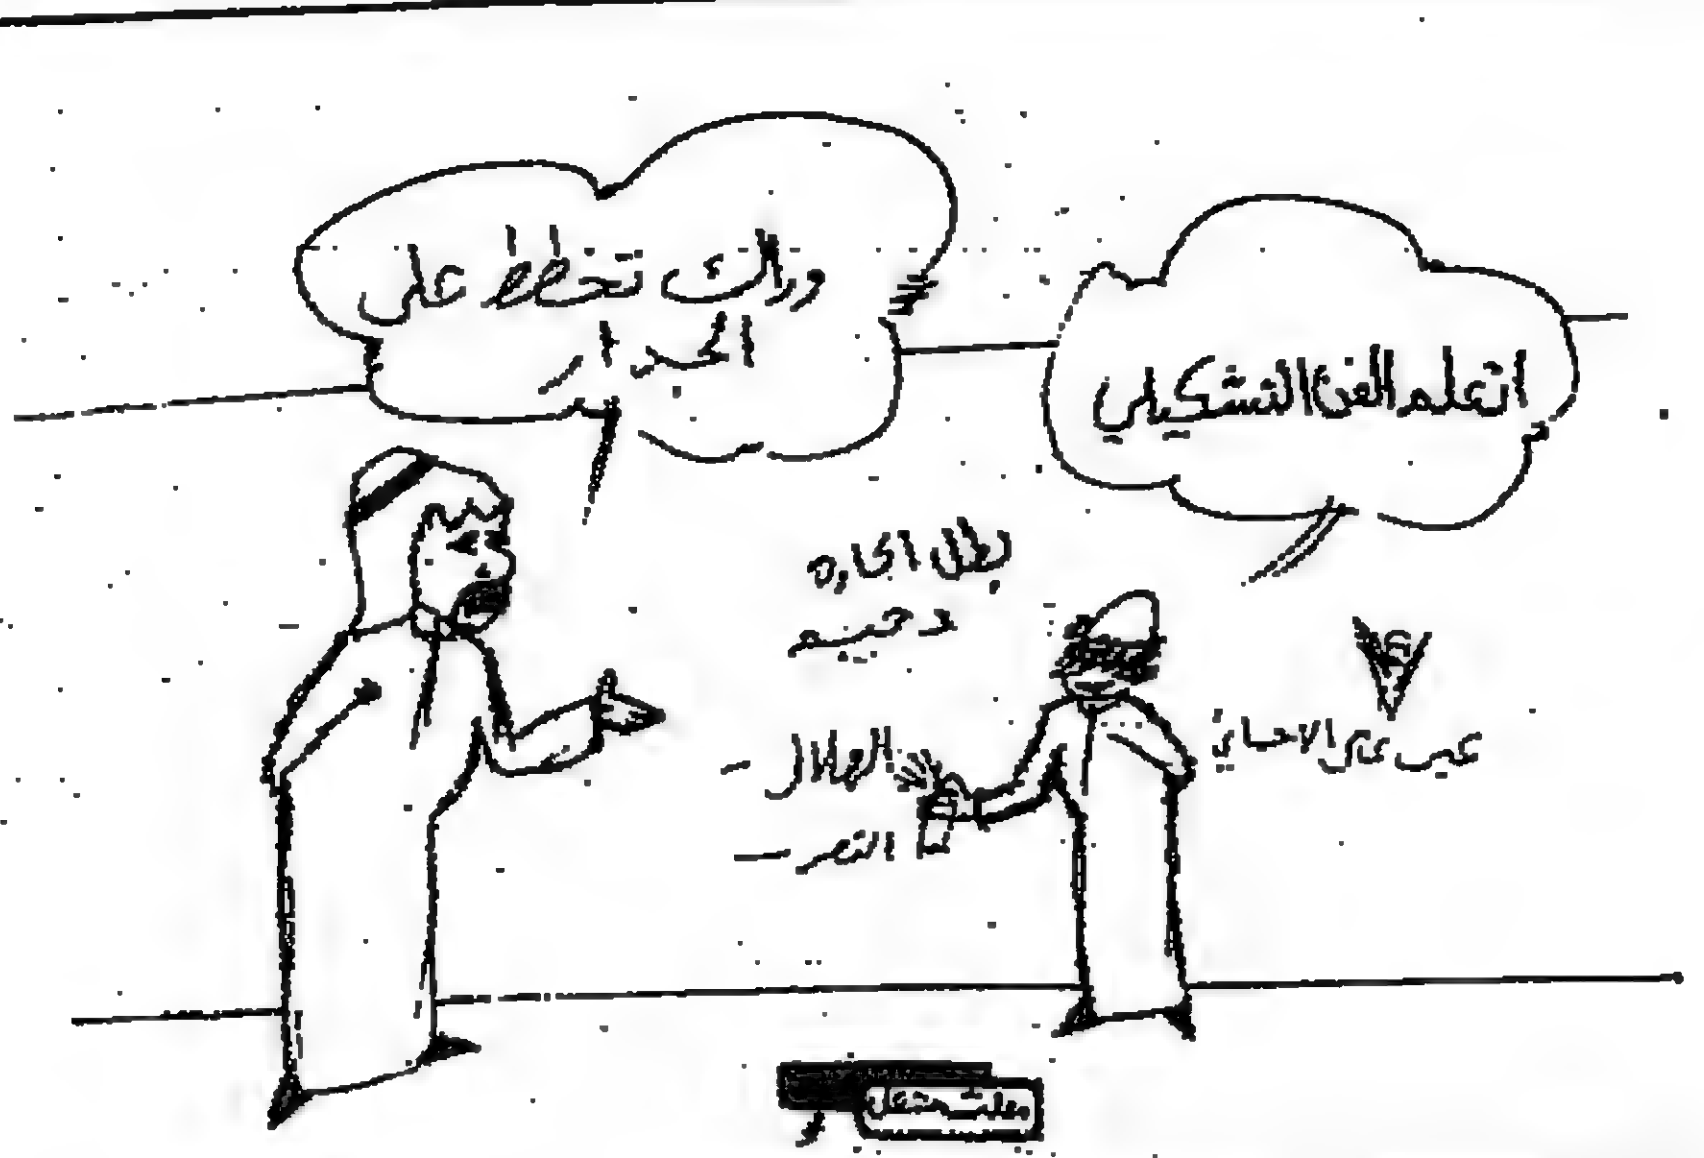 وراك تخطط على
الجدار
اتعلم الفن التشكيلي
بطل الحاره
دحيم
الهلال -
النصر -